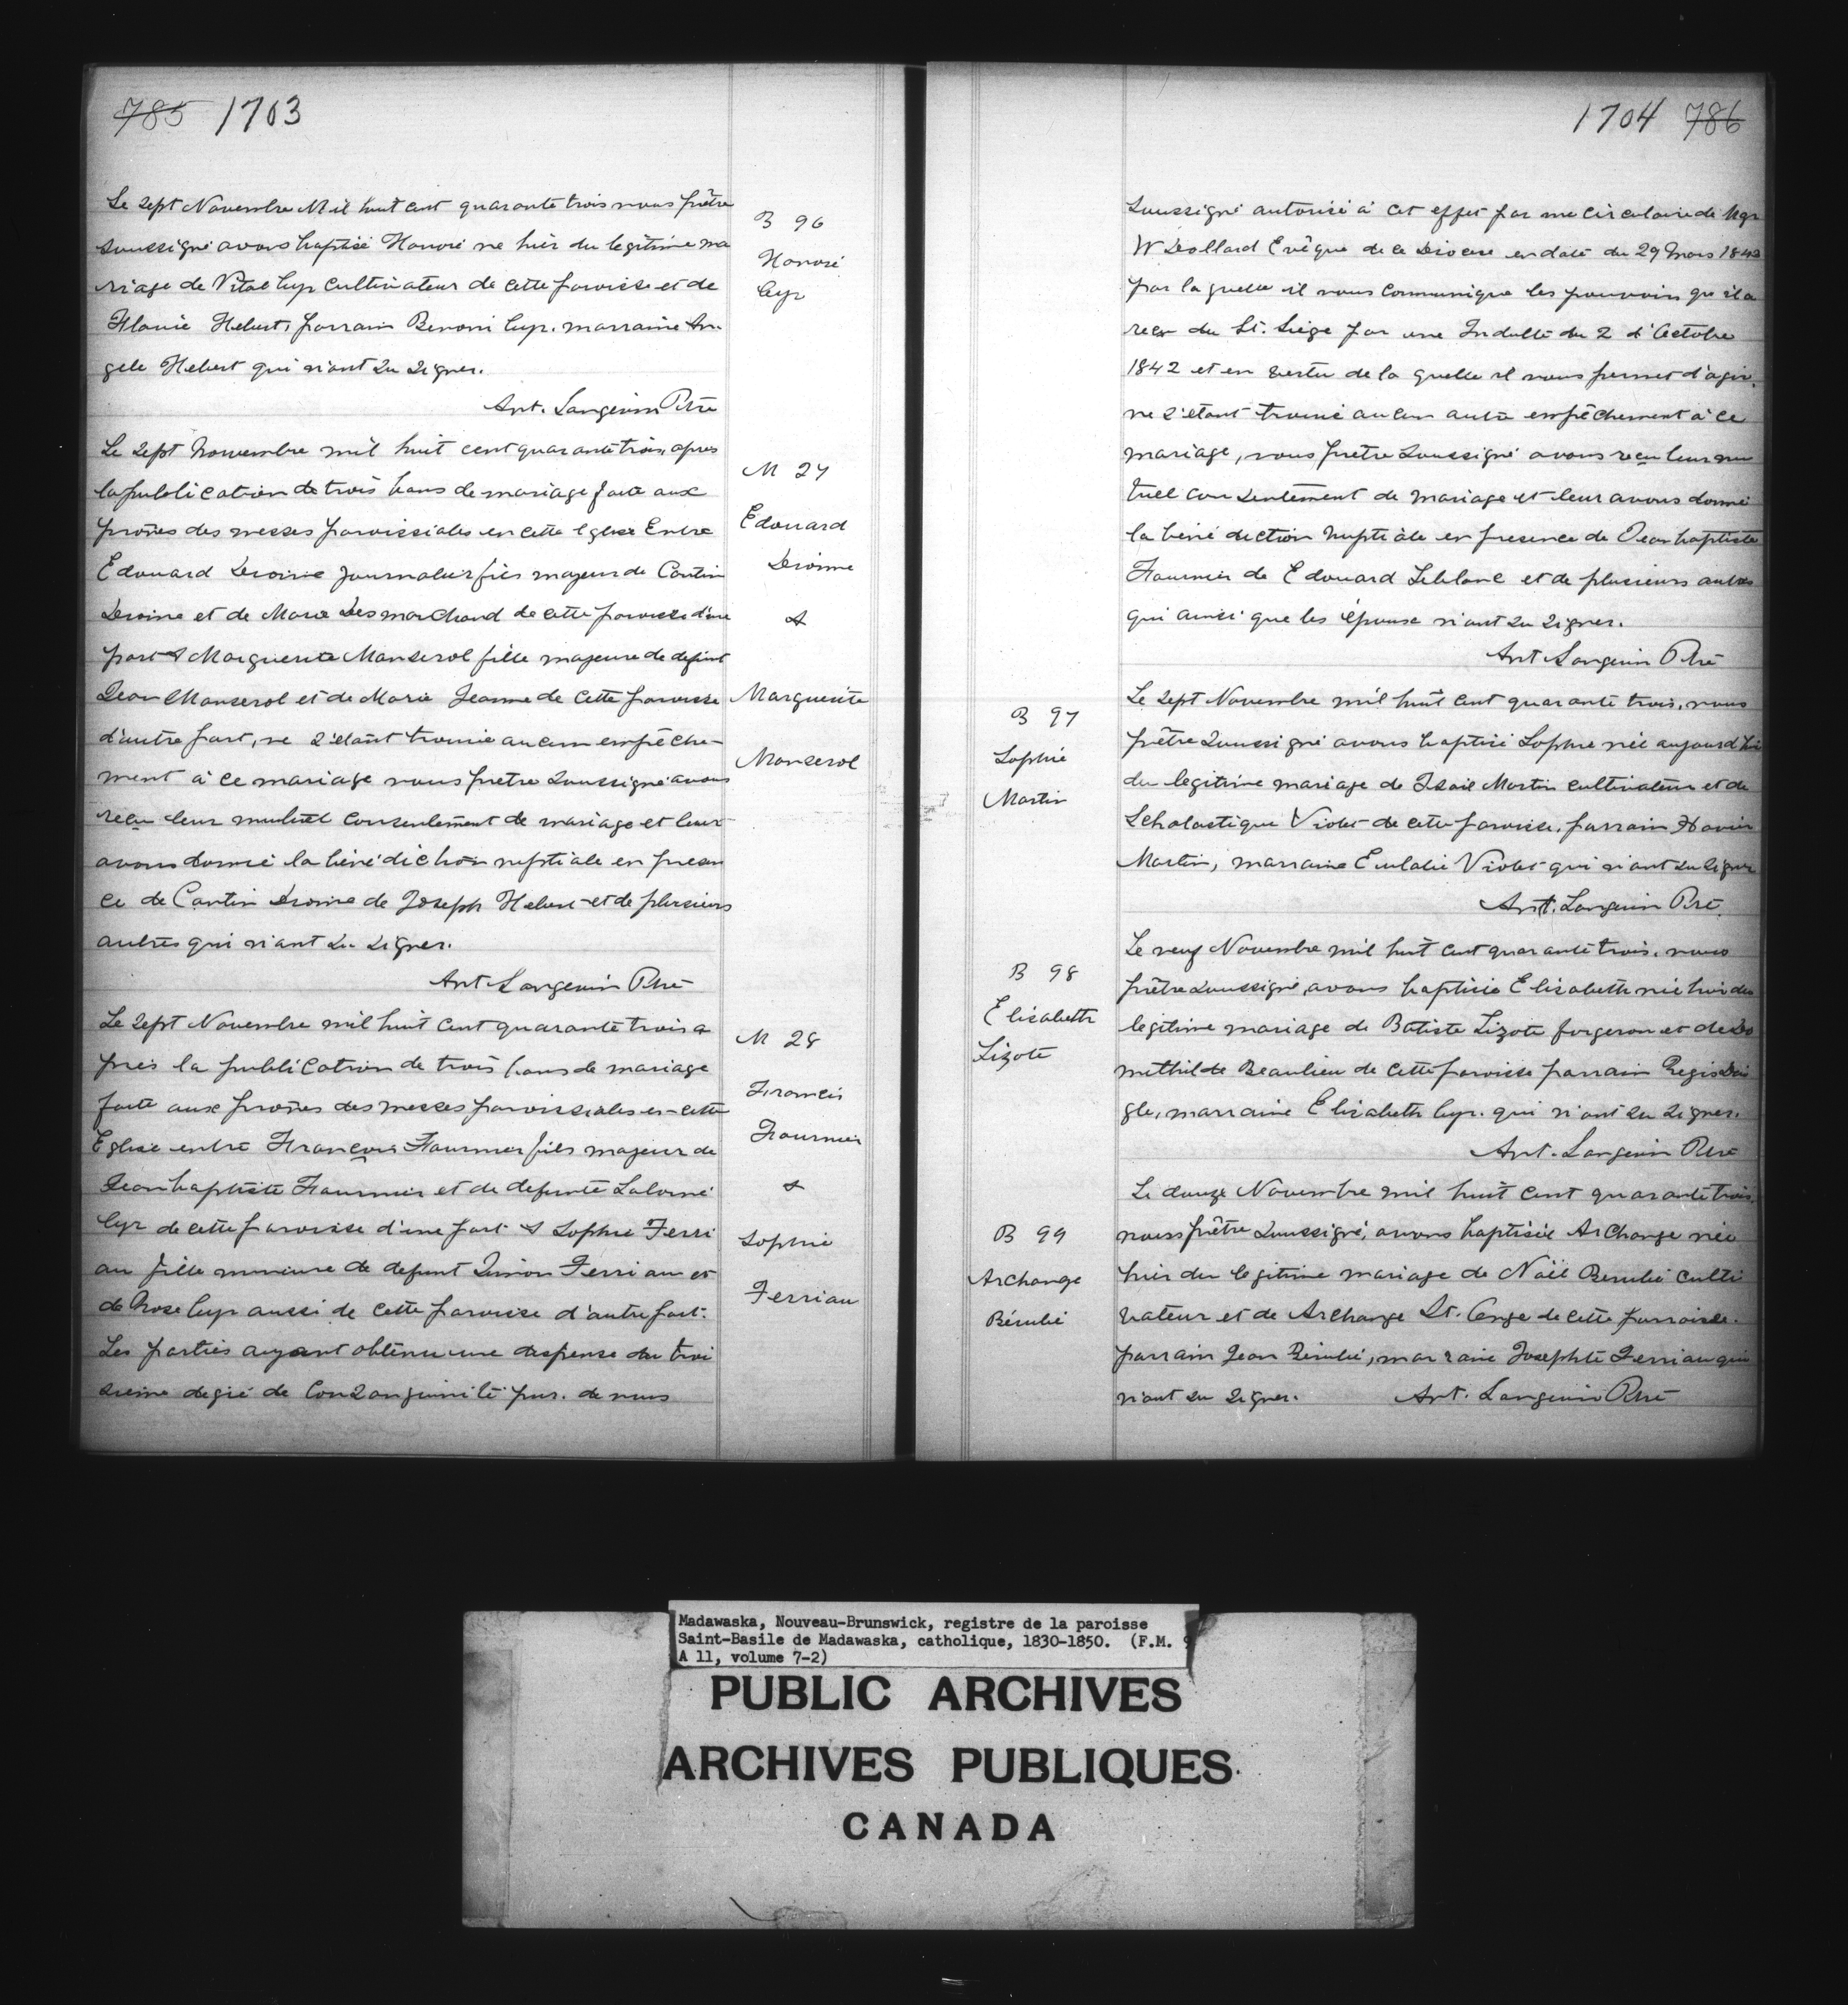 785 1703
Le sept Novembre Mil huit cent quarante trois nous prêtre
soussigné avons baptisé Honoré ne hier du legitime ma
riage de Vital Cyr Cultivateur de cette paroisse et de
Flavie Hebert, parrain Benoni Cyr. marraine An-
gele Hebert qui n'ont su signer.
Ant. Langevin Ptre
B 96
Honoré
Cyr
Le sept Novembre mil huit cent quarante trois, apres
la publication de trois bans de mariage faite aux
prônes des messes paroissiales en cette Eglise Entre
Edouard Droine Journalier fils majeur de Cantin
Droine et de Marie Desmarchand de cette paroisse d'une
part & Marguerite Manserol fille majeure de defunt
Jean Manserol et de Marie Jeanne de cette paroisse
d'autre part, ne s'étant trouvé aucun empêche-
ment à ce mariage nous pretre soussigné avons
reçu leur mutuel consentement de mariage et leur
avons donné la bénédiction nuptiale en presen
ce de Cantin Droine de Joseph Hebert et de plusieurs
autres qui n'ont su signer.
Ant Langevin Ptre
M 27
Edouard
Droinne
&
Marguerite
Manserol
Le sept Novembre mil huit cent quarante trois a
près la publication de trois bans de mariage
faite aux prônes des messes paroissiales en cette
Eglise entre François Fournier fils majeur de
Jean baptiste Fournier et de defunte Salomé
Cyr de cette paroisse d'une part & Sophie Ferri
au fille mineure de defunt Simon Ferriau et
de Rose Cyr aussi de cette paroisse d'autre part.
Les parties ayant obtenu une dispense du troi
sieme degré de Consanguinité par. de nous
M 28
Francois
Fournier
&
Sophie
Ferriau
1704 786
Soussigné autorisé à cet effet par une circulaire de Mgr
W Dollard Evêque de ce Diocese en date du 29 Mars 1843
par laquelle il nous communique les pouvoirs qu'il a
reçu du St. Siége par une Indulte du 2 d'Octobre
1842 et en vertu de la quelle il nous permet d'agir.
ne s'étant trouvé aucun autre empêchement à ce
mariage, nous pretre soussigné avons reçu leur mu
tuel consentement de mariage et leur avons donné
la béné diction nuptiale en presence de Jean baptiste
Fournier de Edouard Leblanc et de plusieurs autres
qui ainsi que les épouse n'ont su signer.
Ant Langevin Ptre
B 97
Sophie
Martin
Le sept Novembre mil huit cent quarante trois, nous
prêtre soussigné avons baptisé Sophie née aujourd'hui
du legitime mariage de Isaie Martin cultivateur et de
Scholastique Violet de cette paroisse, parrain
Martin, marraine Eulalie Violet qui n'ont su signer
Ant. Langevin Ptre.
B 98
Elisabeth
Lizote
Le neuf Novembre mil huit cent quarante trois, nous
prêtre soussigné, avons baptisée Elisabeth née hier du
legitime mariage de Batiste Lizote forgeron et de Do
mithilde Beaulieu de cette paroisse parrain Regis Dai
gle, marraine Elisabeth Cyr. qui n'ont su signer.
Ant. Langevin Ptre
B 99
Archange
Bérubé
Le douze Novembre mil huit cent quarante trois,
nous prêtre soussigné, avons baptisée Archange née
hier du legitime mariage de Noël Berubé culti
vateur et de Archange St. Ange de cette parroisse.
parrain Jean Berubé, marraine Josephte Ferriau qui
n'ont su signer. Ant. Langevin Ptre
Madawaska, Nouveau-Brunswick, registre de la paroisse
Saint-Basile de Madawaska, catholique, 1830-1850. (F.M. 9
A 11, volume 7-2)
PUBLIC ARCHIVES
ARCHIVES PUBLIQUES
CANADA